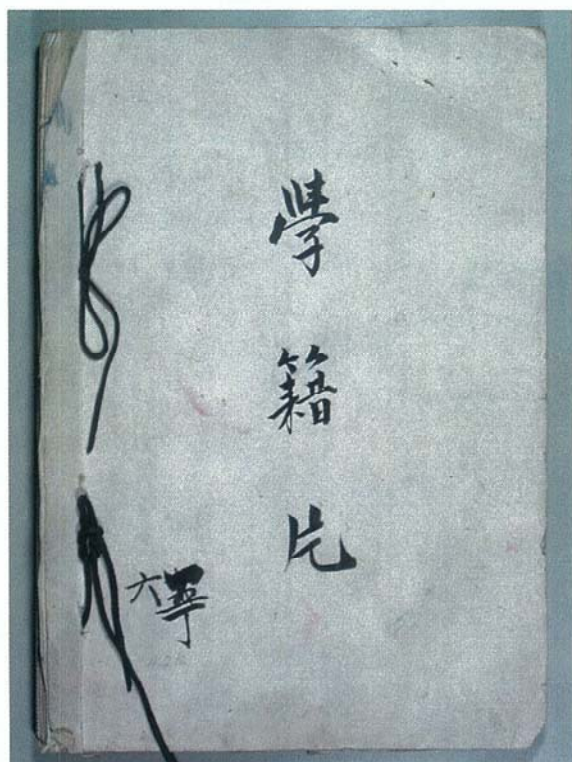 學籍片
六學